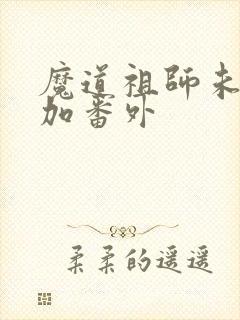 魔道祖師未
加番外
柔柔的遥遥